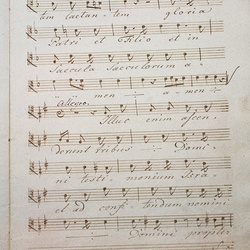 am lactan - tem gloria
Patri et Filio et in
Saecula Saeculorum a -
men - amen
Allegro.
Illuc enim ascen,
derunt tribus Domi,
ni testi, monium Isra,
el ad confi, tendum nomini
Domini propter